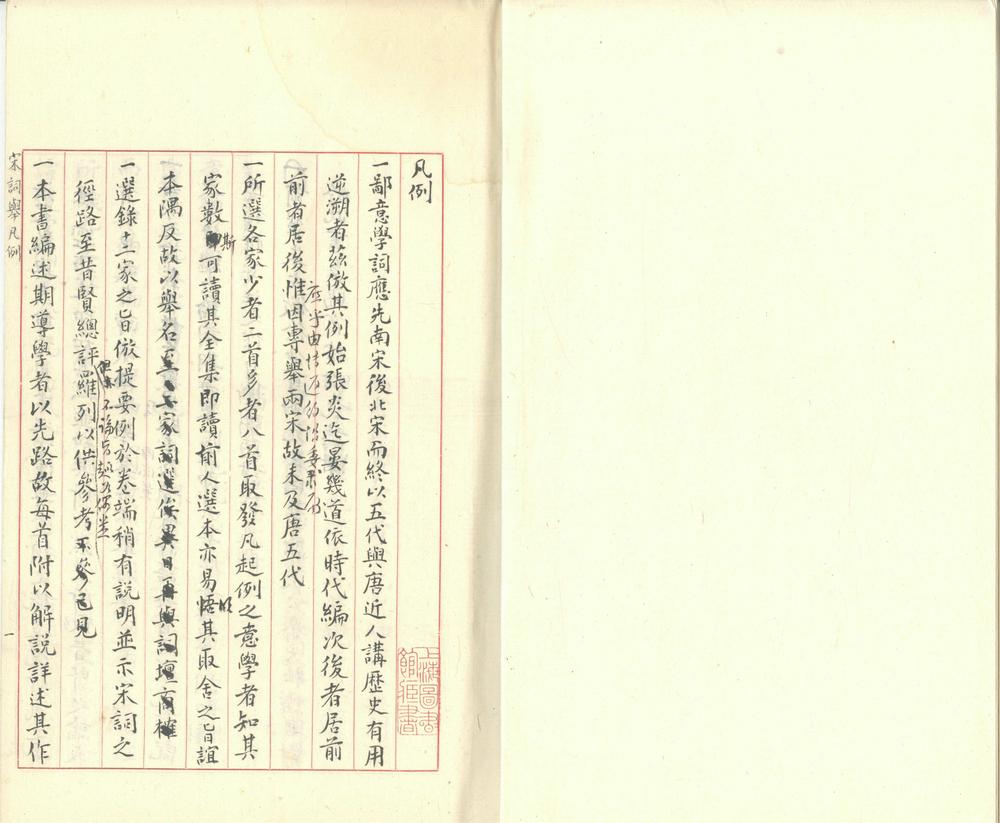 凡例
一鄙意學詞應先南宋後北宋而終以五代與唐近人講歷史有用
逆溯者茲倣其例始張炎迄晏幾道依時代編次後者居前
前者居後惟因專舉兩宋故未及唐五代
一所選各家少者二首多者八首取發凡起例之意學者知其
家數斯可讀其全集即讀前人選本亦易悟其取舍之旨誼
本隅反故以舉名至家詞選俟異日再與詞壇商榷
一選錄十二家之旨倣提要例於卷端稍有説明並示宋詞之
徑路至昔賢總評羅列以供參考不參己見
一本書編述期導學者以先路故每首附以解説詳述其作
宋詞舉凡例
一
上海圖書館藏書